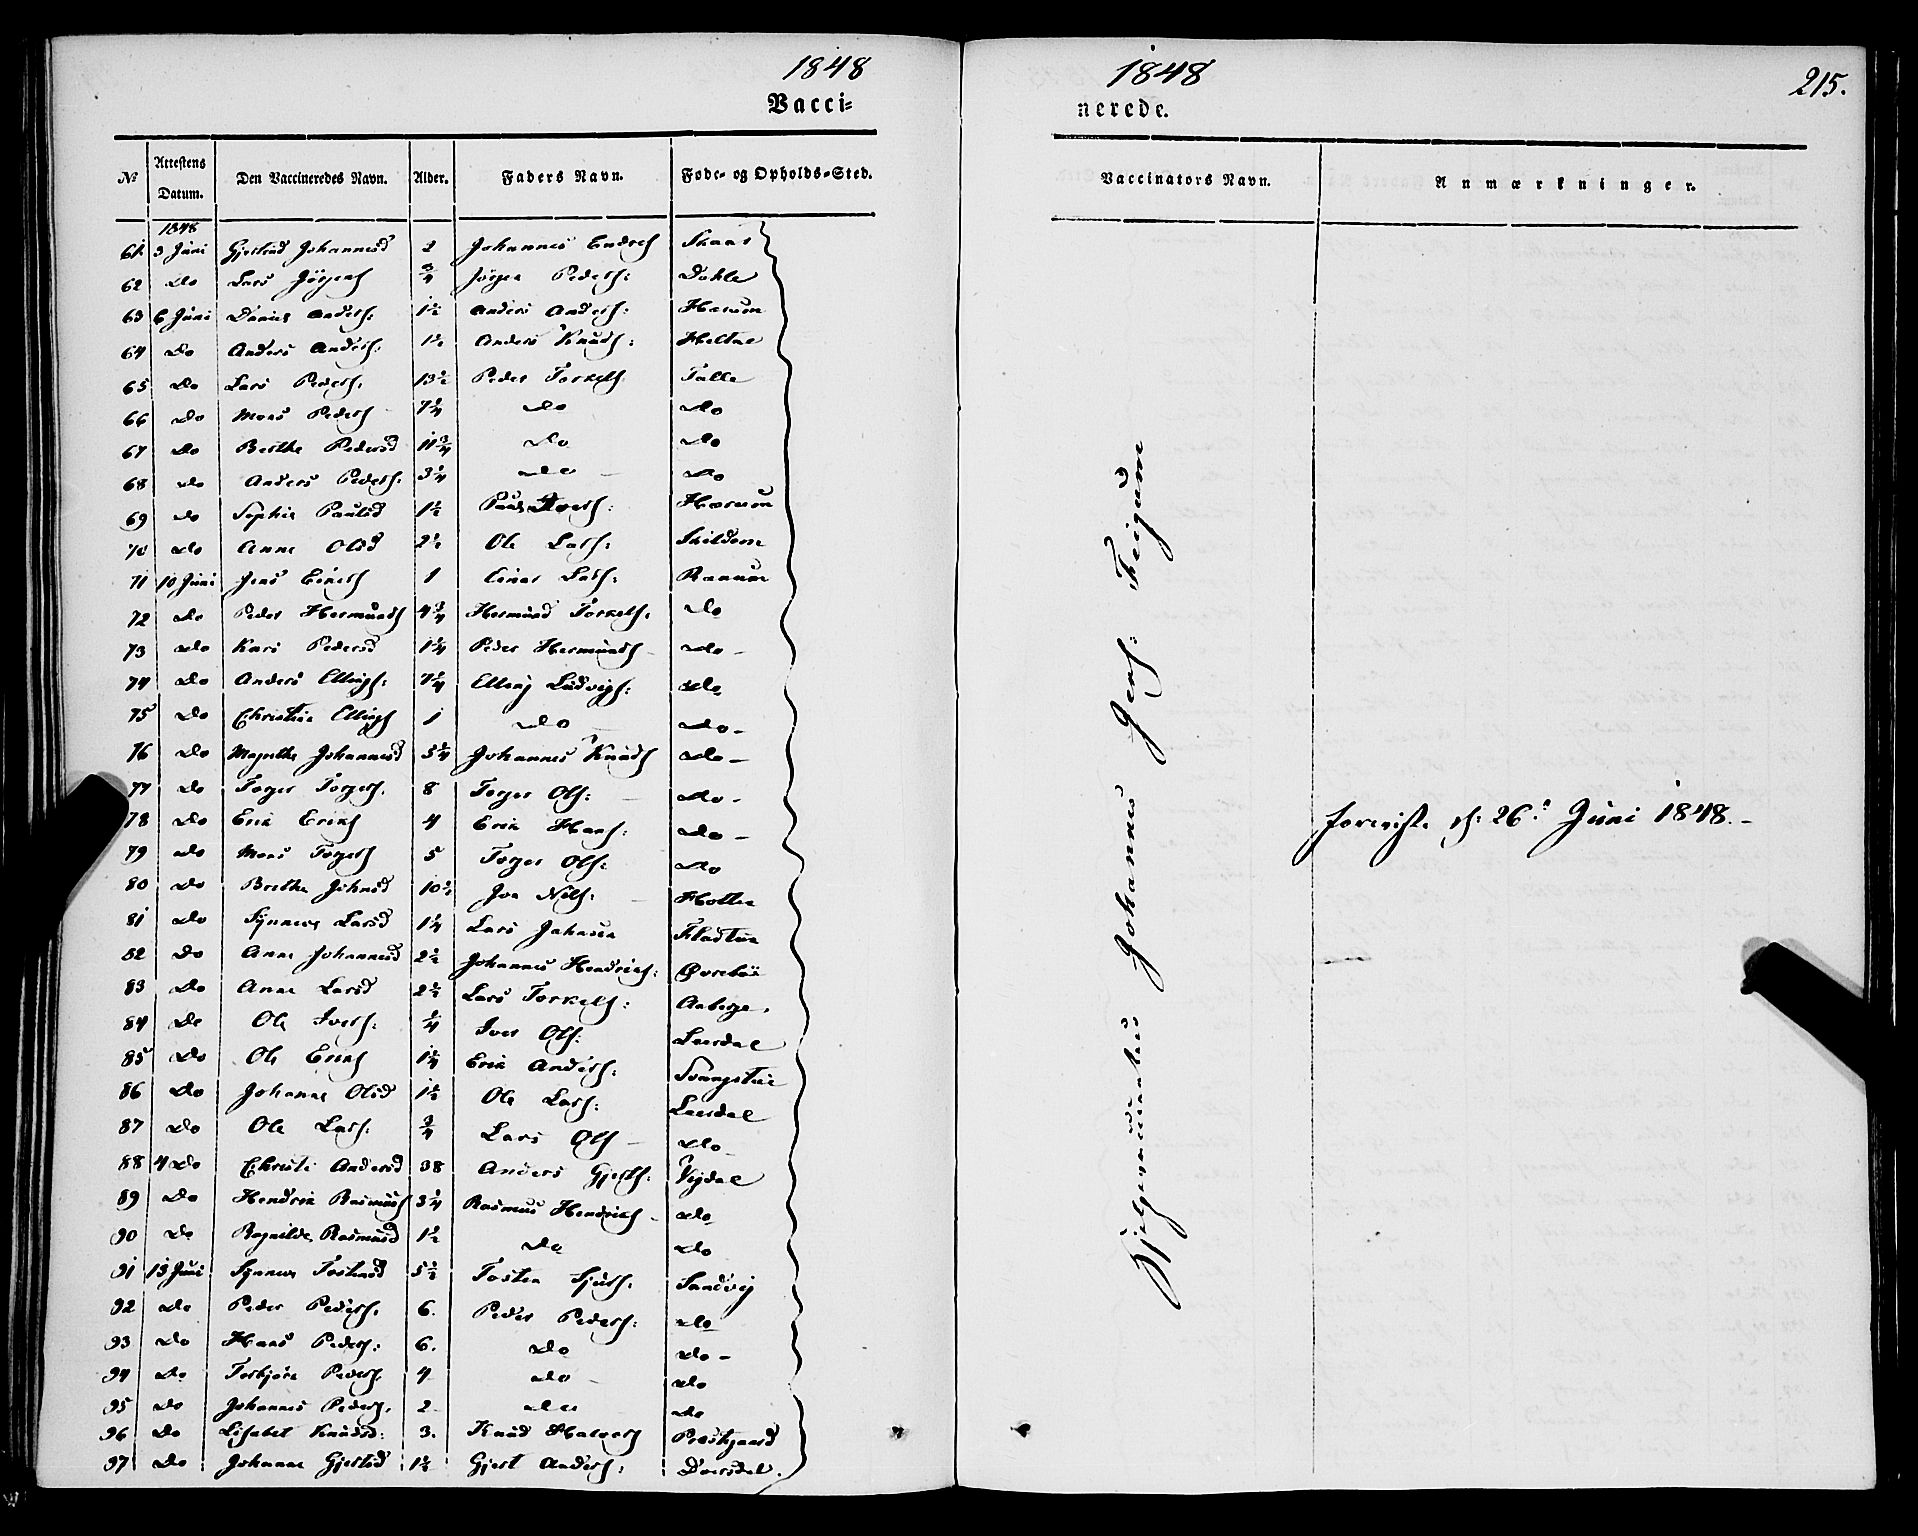 1848
Vacci=
№ Attestens Datum. Den Vaccineredes Navn. Alder. Faders Navn. Føde- og Opholds-Sted.
1848
61 3 Juni Gjertrud Johannesd 2 Johannes Endres Skaar
62 Do Lars Jörgens 3/4 Jörgen Peders: Dahle
63 6 Juni Anders: 1½ Anders Anders: Havum
64 Do Anders Anders: 1½ Anders Knuds:
65 Do Lars Peders: 13½ Peder Torkels Talle
66 Do Mons Peders 7¼ Do Do
67 Do Berthe Pedersd 11¾ Do Do
68 Do Anders Peders: 3¼ Do Do
69 Do Sophie Paulsd 1½ Havum
70 Do Anna Olsd 2½ Ole Lars: Skildum
71 10 Juni Jens Einers 1 Einar Lars: Ranum
72 Do Peder Hermunds 4¾ Hermund Torkels. Do
73 Do Kari Pedersd 1¼ Peder Hermunds Do
74 Do Anders Ellings: 7¼ Elling Ludvigs: Do
75 Do Christine Ellings 1 Do Do
76 Do Magrethe Johannesd 5¼ Johannes Knuds Do
77 Do Torger Torgers. 8 Torger Ols: Do
78 Do Erik Eriks 4 Erik Hans: Do
79 Do Mons Torgers 5 Torger Ols: Do
80 Do Brethe Johnsd 10½ Jon Nils:
81 Do Synneve Larsd 1¼ Lars Johansen
82 Do Anna Johannesd 2½ Johannes Hendriks: Øvrebøe
83 Do Anna Larsd 2½ Lars Torkels: Aaberge.
84 Do Ole Ivers: ¾ Iver Ols: Leerdal
85 Do Ole Eriks 1¼ Erik Anders: Svangstue
86 Do Johanne Olsd 1½ Ole Lars: Leerdal
87 Do Ole Lars: ¾ Lars Ols Do
88 4 Do Christi Andersd 38 Anders Gjerts: Vejdal
89 Do Hendrik Rasmus 3¼ Rasmus Hendriks Do
90 Do Ragnilde Rasmusd 1½ Do Do
91 13 Juni Synneve Tostensd 5½ Tosten Sjurs: Sandvig
92 Do Peder Peders. 6. Peder Peders: Do
93 Do Hans Peders: 6. Do Do
94 Do Torbjörn Peders 4 Do Do
95 Do Johannes Peders. 2 Do Do
96 Do Lisabet Knudsd: 3. Knud Halvors Præstgaard
97 Do Johanne Gjertsd 1½ Gjert Anders: Dversdal.
1848
215.
nerede.
Vaccinators Navn. Anmærkninger.
Hjelpevaccinateur Johannes Jens: Feigum
foreviste d: 26. Juni 1848.